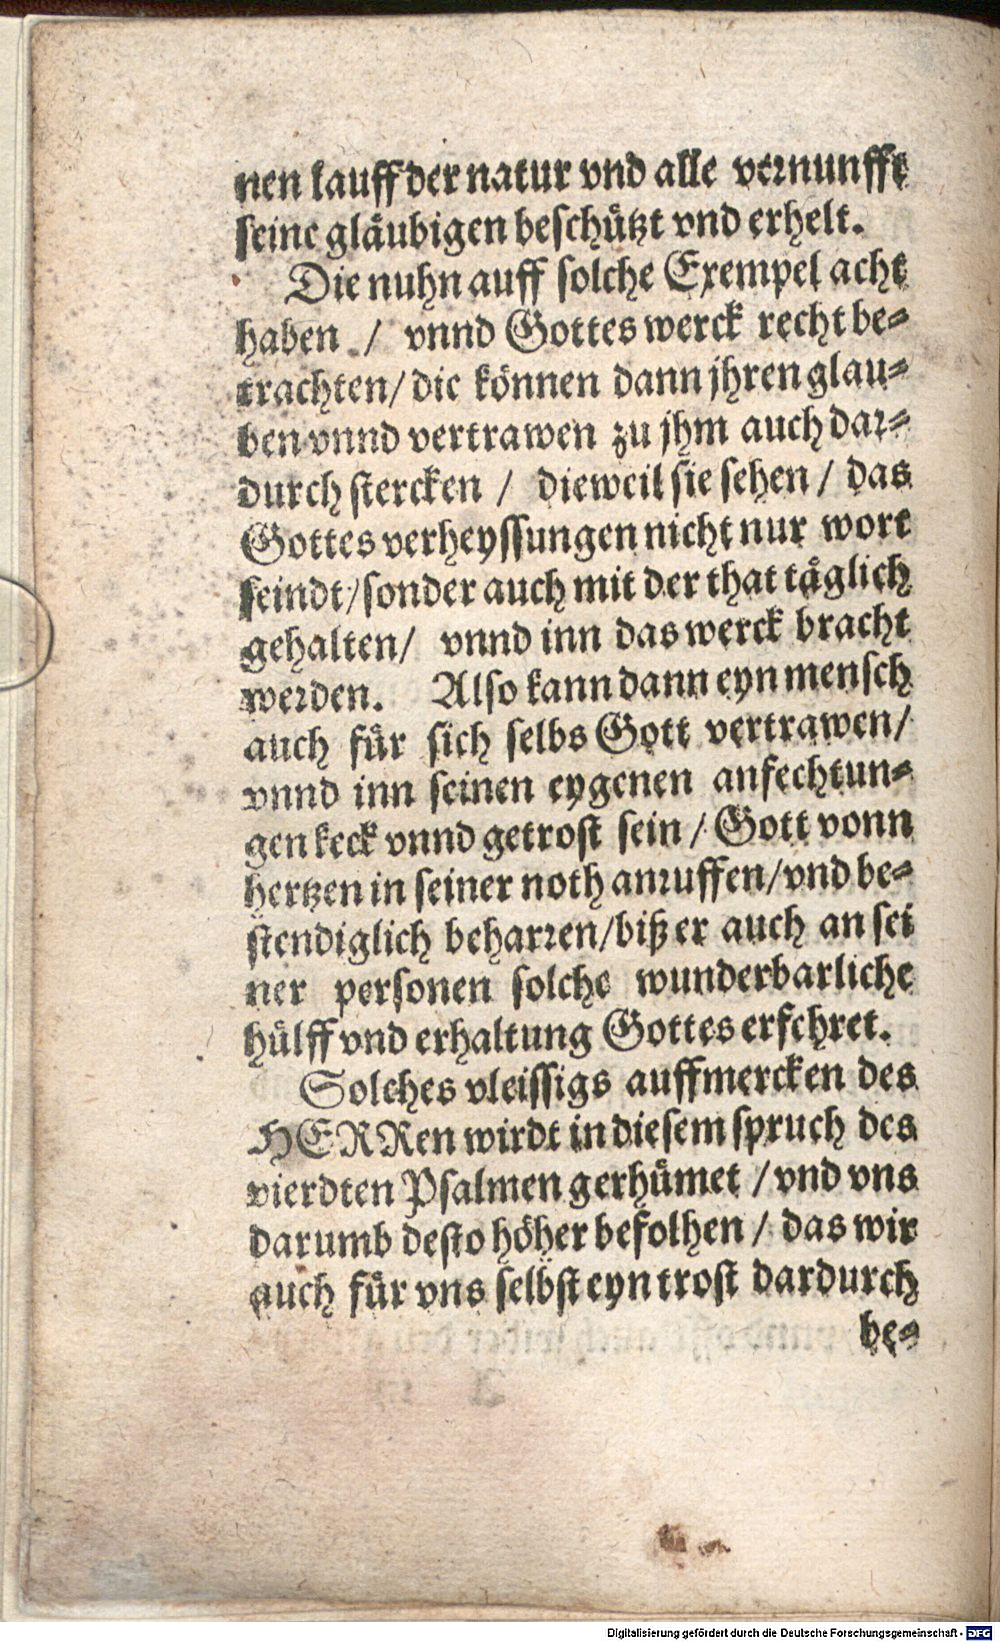 nen lauff der natur vnd alle vernunfft
seine gläubigen beschützt vnd erhelt.
Die nuhn auff solche Exempel acht
haben / vnnd Gottes werck recht be-
trachten/ die können dann jhren glau-
ben vnnd vertrawen zu jhm auch dar-
durch stercken / dieweil sie sehen / das
Gottes verheyssungen nicht nur wort
seindt/sonder auch mit der that täglich
gehalten/ vnnd inn das werck bracht
werden. Also kann dann eyn mensch
auch für sich selbs Gott vertrawen/
vnnd inn seinen eygenen anfechtun-
gen keck vnnd getrost sein / Gott vonn
hertzen in seiner noth anruffen/vnd be-
stendiglich beharren/biß er auch an sei
ner personen solche wunderbarliche
hülff vnd erhaltung Gottes erfehret.
Solches vleissigs auffmercken des
HERRen wirdt in diesem spruch des
vierdten Psalmen gerhümet / vnd vns
darumb desto höher befolhen / das wir
auch für vns selbst eyn trost dardurch
be-
Digitalisierung gefördert durch die Deutsche Forschungsgemeinschaft - DFG